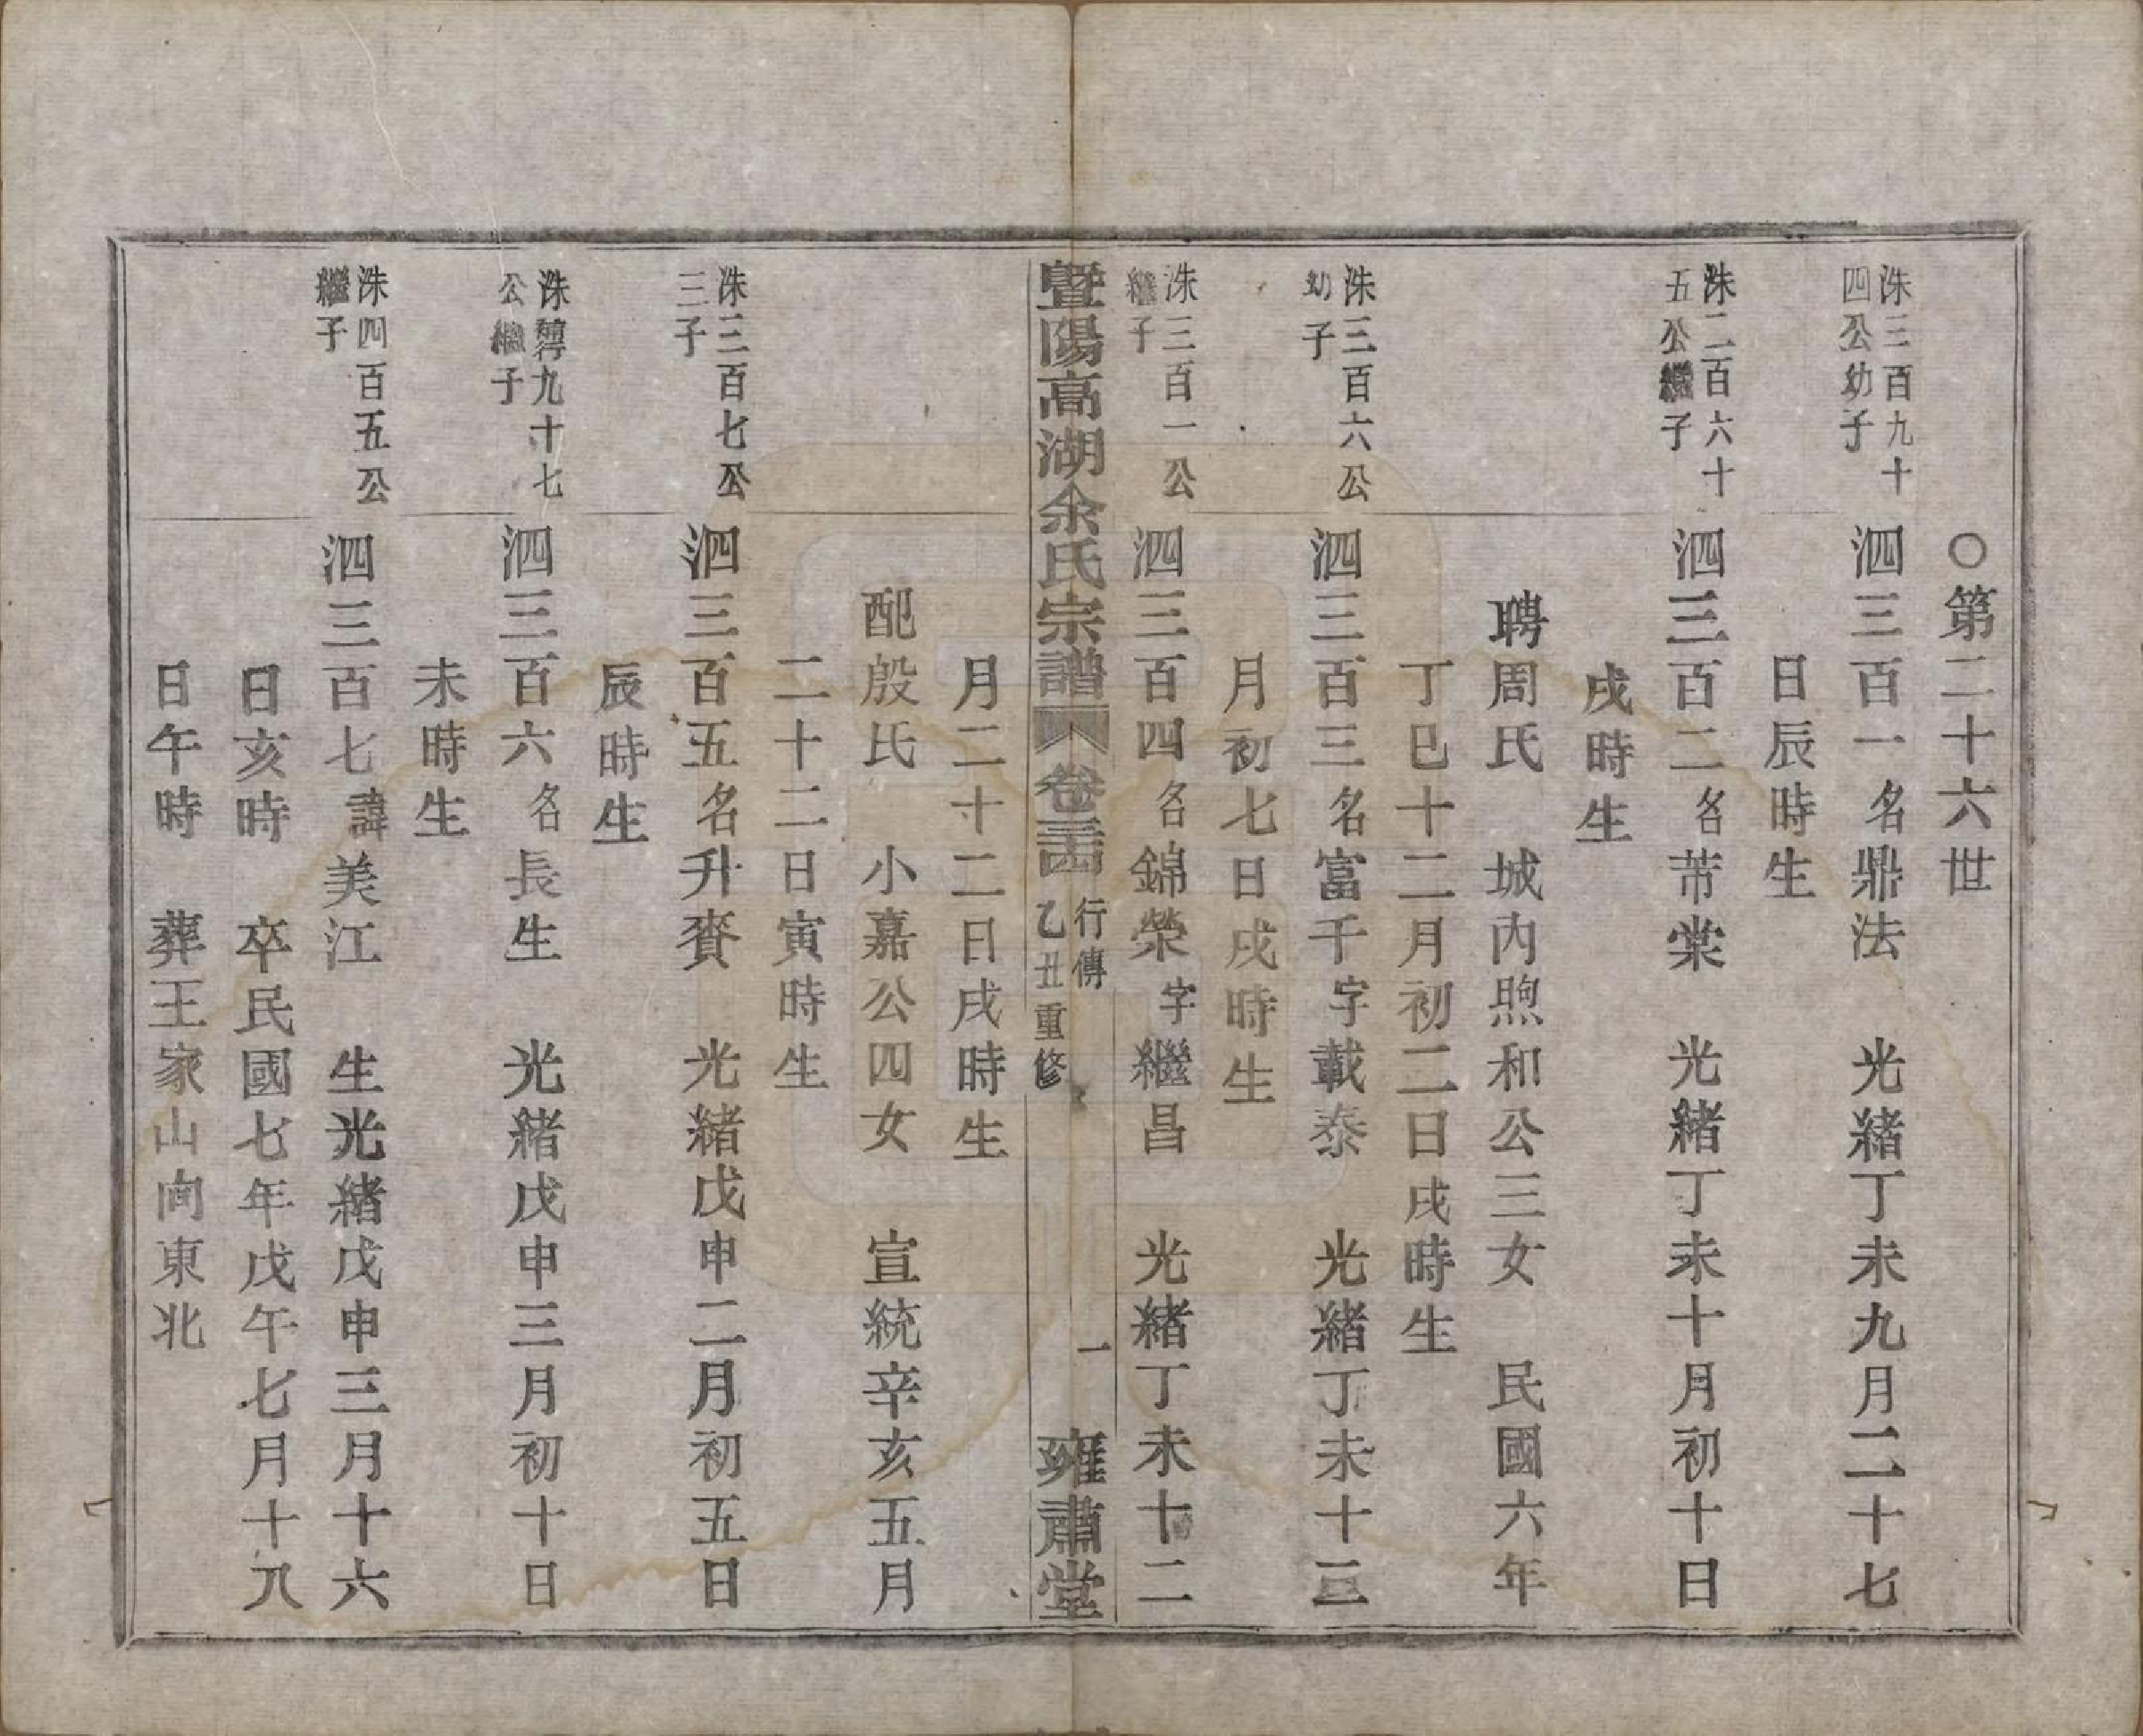 ○第二十六世
洙三百九十
四公幼子
泗三百一名鼎法　光緒丁未九月二十七
日辰時生
洙二百六十
五公繼子
泗三百二名芾棠　光緒丁未十月初十日
戌時生
聘周氏　城內煦和公三女　民國六年
丁巳十二月初二日戌時生
洙三百六公
幼子
泗三百三名富千字載泰　光緒丁未十三
月初七日戌時生
洙三百一公
繼子
泗三百四名錦榮字繼昌　光緒丁未十二
暨陽高湖余氏宗譜　卷二十四
行傳
乙丑重修
一
雍肅堂
月二十二日戌時生
配殷氏　小嘉公四女　宣統辛亥五月
二十二日寅時生
洙三百七公
三子
泗三百五名升賚　光緒戊申二月初五日
辰時生
洙九十七
公繼子
泗三百六名長生　光緒戊申三月初十日
未時生
洙四百五公
繼子
泗三百七諱美江　生光緒戊申三月十六
日亥時　卒民國七年戊午七月十八
日午時　葬王家山向東北